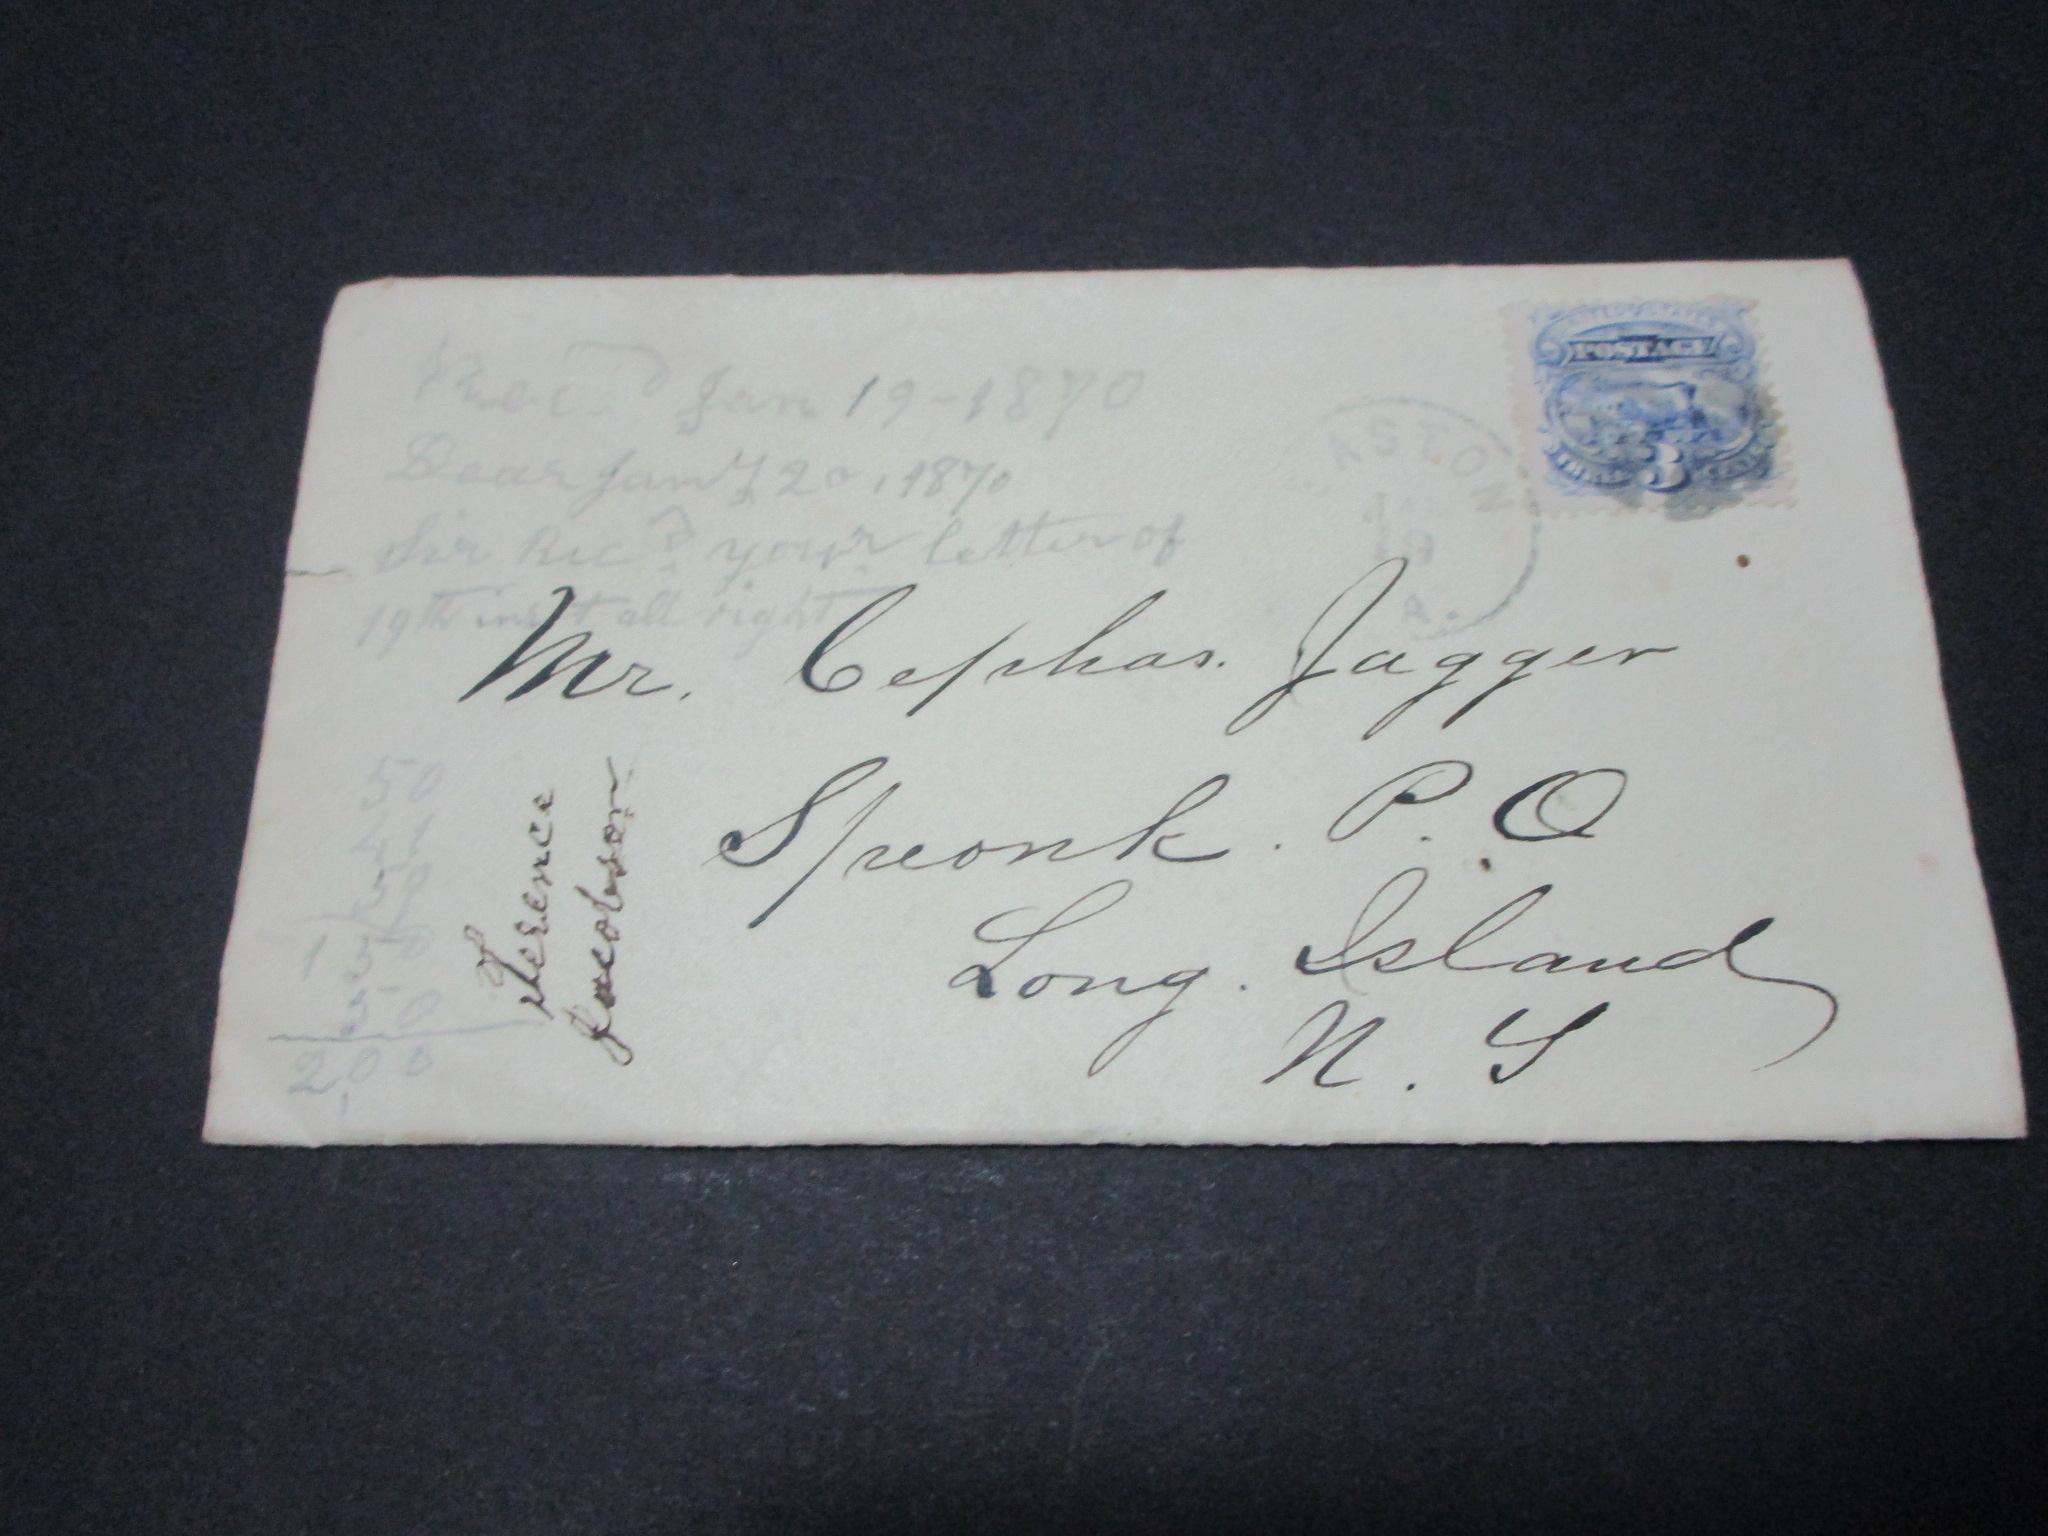 Rec'd Jan 19-1870
Dear Jan'y 20, 1870
Sir Rec'd your letter of
19th inst all right
UNITED STATES
POSTAGE
THREE 3 CENTS
ASTON
PA.
Mr. Cephas. Jagger
Speonk. P. O
Long. Island
N. Y
Terence
Jacobson
200